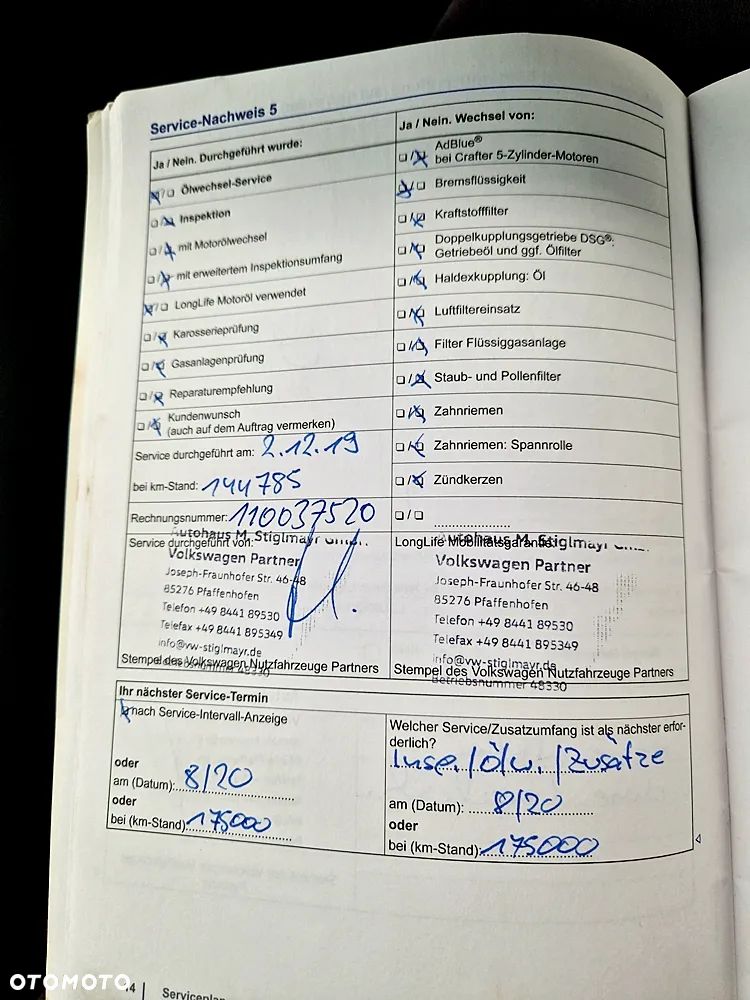 Service-Nachweis 5
Ja / Nein. Durchgeführt wurde:
Ölwechsel-Service
Inspektion
mit Motorölwechsel
mit erweitertem Inspektionsumfang
LongLife Motoröl verwendet
Karosserieprüfung
Gasanlagenprüfung
Reparaturempfehlung
Kundenwunsch
(auch auf dem Auftrag vermerken)
Service durchgeführt am: 2.12.19
bei km-Stand: 144785
Rechnungsnummer: 110037520
Service durchgeführt von:
Autohaus M. Stiglmayr GmbH
Volkswagen Partner
Joseph-Fraunhofer Str. 46-48
85276 Pfaffenhofen
Telefon +49 8441 89530
Telefax +49 8441 895349
info@vw-stiglmayr.de
Stempel des Volkswagen Nutzfahrzeuge Partners
Ja / Nein. Wechsel von:
AdBlue®
bei Crafter 5-Zylinder-Motoren
Bremsflüssigkeit
Kraftstofffilter
Doppelkupplungsgetriebe DSG®:
Getriebeöl und ggf. Ölfilter
Haldexkupplung: Öl
Luftfiltereinsatz
Filter Flüssiggasanlage
Staub- und Pollenfilter
Zahnriemen
Zahnriemen: Spannrolle
Zündkerzen
LongLife Mobilitätsgarantie:
Autohaus M. Stiglmayr GmbH
Volkswagen Partner
Joseph-Fraunhofer Str. 46-48
85276 Pfaffenhofen
Telefon +49 8441 89530
Telefax +49 8441 895349
info@vw-stiglmayr.de
Stempel des Volkswagen Nutzfahrzeuge Partners
Betriebsnummer 48330
Ihr nächster Service-Termin
nach Service-Intervall-Anzeige
oder
am (Datum): 8/20
oder
bei (km-Stand): 175000
Welcher Service/Zusatzumfang ist als nächster erfor-
derlich?
Insp. / Ölw. / Zusätze
am (Datum): 8/20
oder
bei (km-Stand): 175000
OTOMOTO
4 | Serviceplan